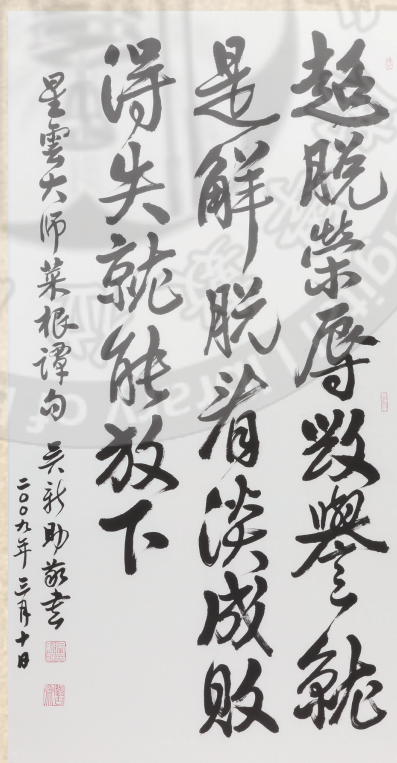 超脫榮辱毀譽就
是解脫看淡成敗
得失就能放下
星雲大师菜根譚句 吳新助敬書
二〇〇九年三月十日